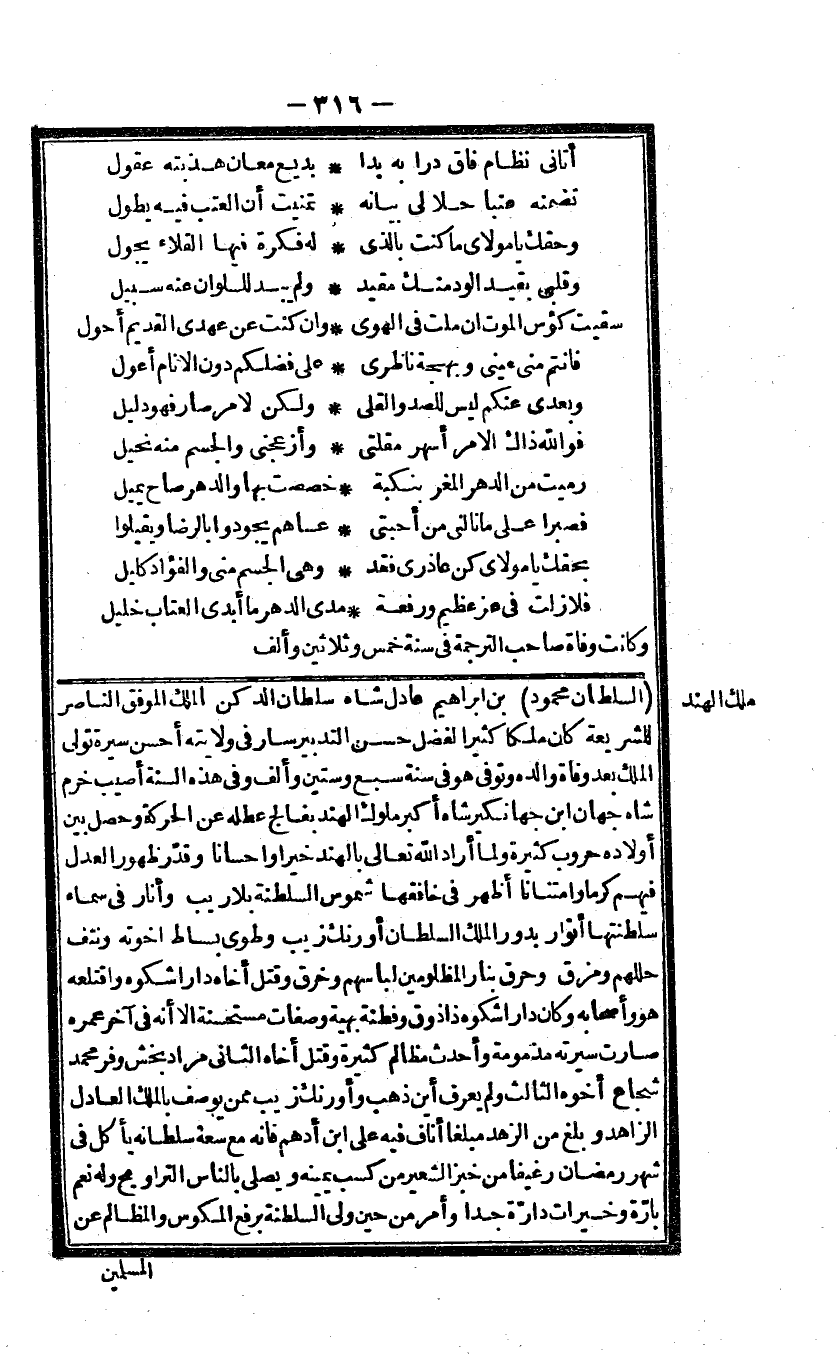 — ٣١٦ —
أتانى نظام فاق درا به بدا * بديع معان هذبته عقول
تضمنه عتبا حلالى بيانه * تمنيت أن العتب فيه يطول
وحقك يا مولاى ما كنت بالذى * له فكرة فيها القلاء يجول
وقلبى بقيد الود منك مقيد * ولم يبد للسلوان عنه سبيل
سقيت كؤس الموت ان ملت فى الهوى * وان كنت عن عهدى القديم أحول
فانتم منى عينى وبهجة ناظرى * على فضلكم دون الانام أعول
وبعدى عنكم ليس للصد والقلى * ولكن لامر صار فهو دليل
فوالله ذاك الامر أسهر مقلتى * وأزعجنى والجسم منه نحيل
رميت من الدهر المغر بنكبة * خصصت بها والدهر صاح يميل
فصبرا على ما نالنى من أحبتى * عساهم يجودوا بالرضا ويقيلوا
بحقك يا مولاى كن عاذرى فقد * وهى الجسم منى والفؤاد كليل
فلا زلت فى عز عظيم ورفعة * مدى الدهر ما أبدى العتاب خليل
وكانت وفاة صاحب الترجمة فى سنة خمس وثلاثين وألف
ملك الهند
(السلطان محمود) بن ابراهيم عادل شاه سلطان الدكن الملك الموفق الناصر
للشريعة كان ملكا كثير الفضل حسن التدبير سار فى ولايته أحسن سيرة تولى
الملك بعد وفاة والده وتوفى هو فى سنة سبع وستين وألف وفى هذه السنة أصيب خرم
شاه جهان ابن جهانكير شاه أكبر ملوك الهند بفالج عطله عن الحركة وحصل بين
أولاده حروب كثيرة ولما أراد الله تعالى بالهند خيرا واحسانا وقدّر ظهور العدل
فيهم كرما وامتنانا أظهر فى خافقها شموس السلطنة بلا ريب وأنار فى سماء
سلطنتها أنوار بدور الملك السلطان أورنك زيب وطوى بساط اخوته ونتف
حللهم ومزق وحرق بنار المظلومين لباسهم وخرق وقتل أخاه دارا شكوه واقتلعه
هو وأصحابه وكان دارا شكوه ذا ذوق وفطنة بهية وصفات مستحسنة الا أنه فى آخر عمره
صارت سيرته مذمومة وأحدث مظالم كثيرة وقتل أخاه الثانى مراد بخش وفر محمد
شجاع أخوه الثالث ولم يعرف أين ذهب وأورنك زيب ممن يوصف بالملك العادل
الزاهد وبلغ من الزهد مبلغا أناف فيه على ابن أدهم فانه مع سعة سلطانه يأكل فى
شهر رمضان رغيفا من خبز الشعير من كسب يمينه ويصلى بالناس التراويح وله نعم
بارّة وخيرات دارّة جدا وأمر من حين ولى السلطنة برفع المكوس والمظالم عن
المسلمين